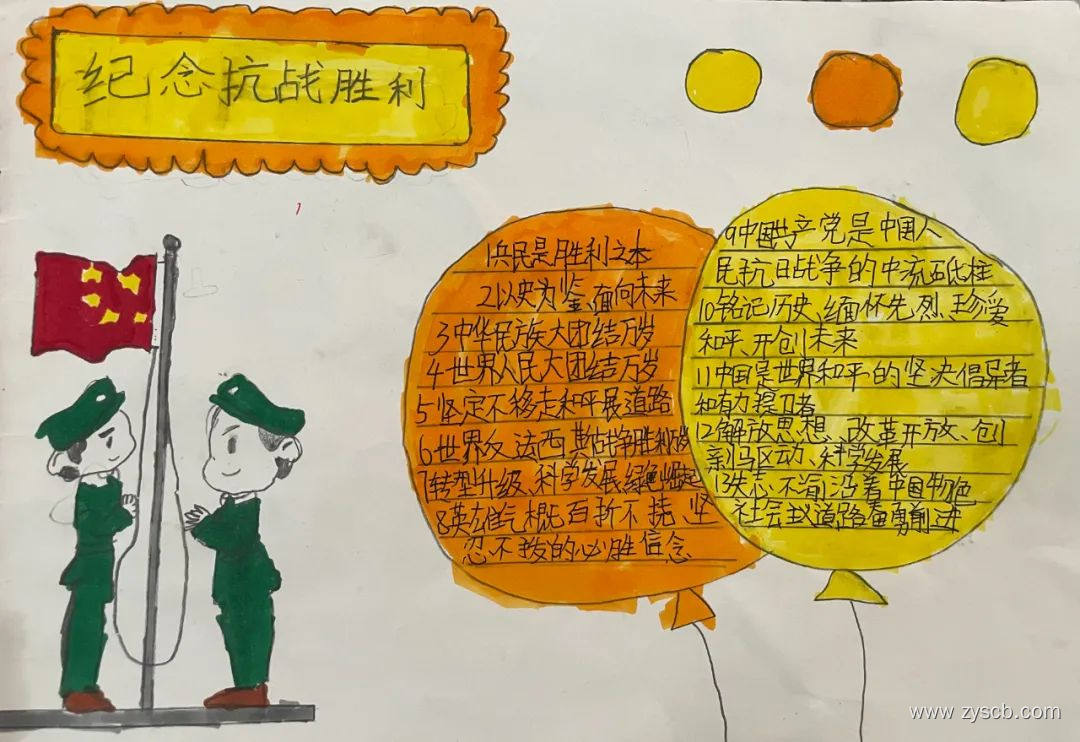 纪念抗战胜利
1兵民是胜利之本
2以史为鉴、面向未来
3中华民族大团结万岁
4世界人民大团结万岁
5坚定不移走和平展道路
6世界反法西斯战争胜利万岁
7转型升级、科学发展、绿色崛起
8英雄气概百折不挠、坚
忍不拔的必胜信念
9中国共产党是中国人
民抗日战争的中流砥柱
10铭记历史、缅怀先烈、珍爱
和平、开创未来
11中国是世界和平的坚决倡导者
和有力捍卫者
12解放思想、改革开放、创
新驱动、科学发展
13矢志不渝沿着中国特色
社会主义道路奋勇前进
www.zyscb.com